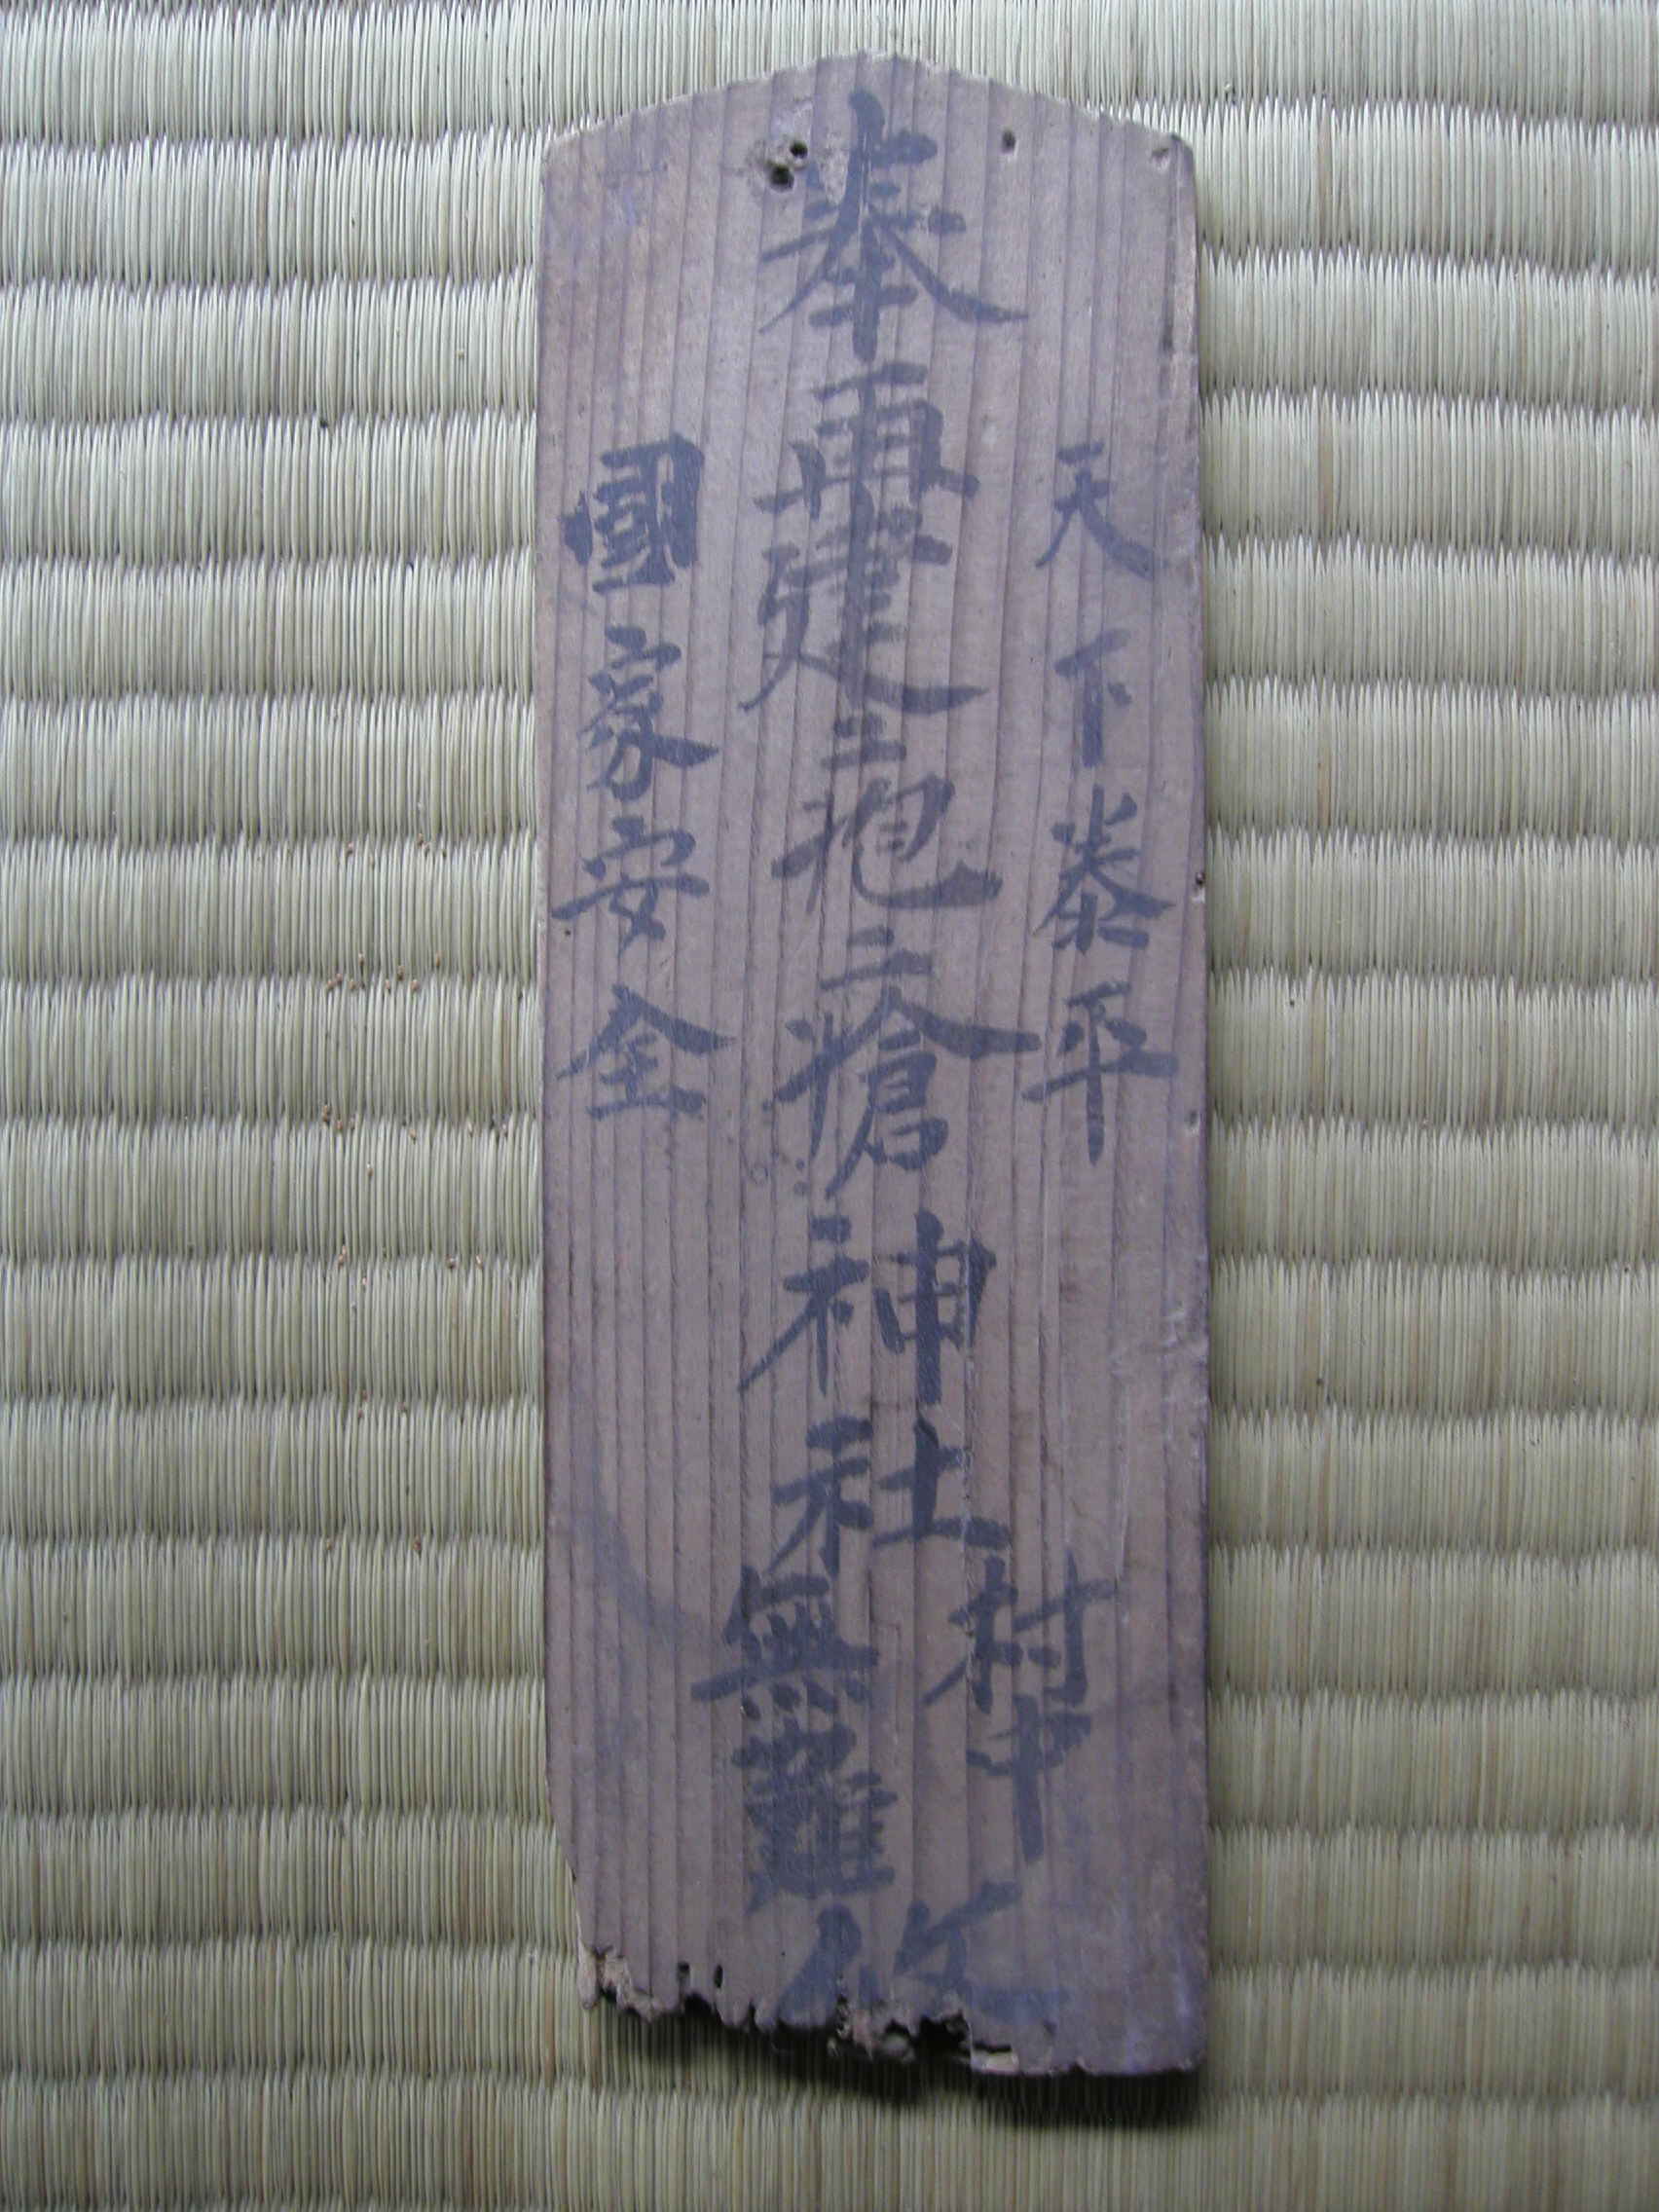 天下泰平
奉再建疱瘡神社
國家安全
村中
無難